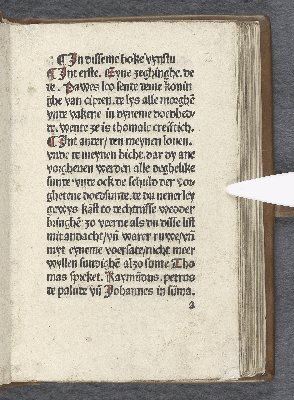 ¶ In disseme boke vynstu
¶ Int erste. Eyne zeghinghe. de
de. Pawes leo sente deme konin
ghe van cipren. de lys alle morghē
vnde vakene in dyneme doetbed-
de. wente ze is thomale creftich.
¶ Int ander/ den meynen louen.
vnde de meynen bicht. dar dy ane
vorgheuen werden alle deghelike
sunde vnde ock de schult der vor
ghetene doetsunde. de du nener ley
gewys kāst to rechtnisse wedder
bringhē zo verne als du disse list
mit andacht/vn̄ warer ruwe/vn̄
myt eyneme vorsate/nicht meer
wyllen sundighē alzo sunte Tho
mas spreket. Raymūdus. petrus
de palude vn̄ Johannes in sūma.
a